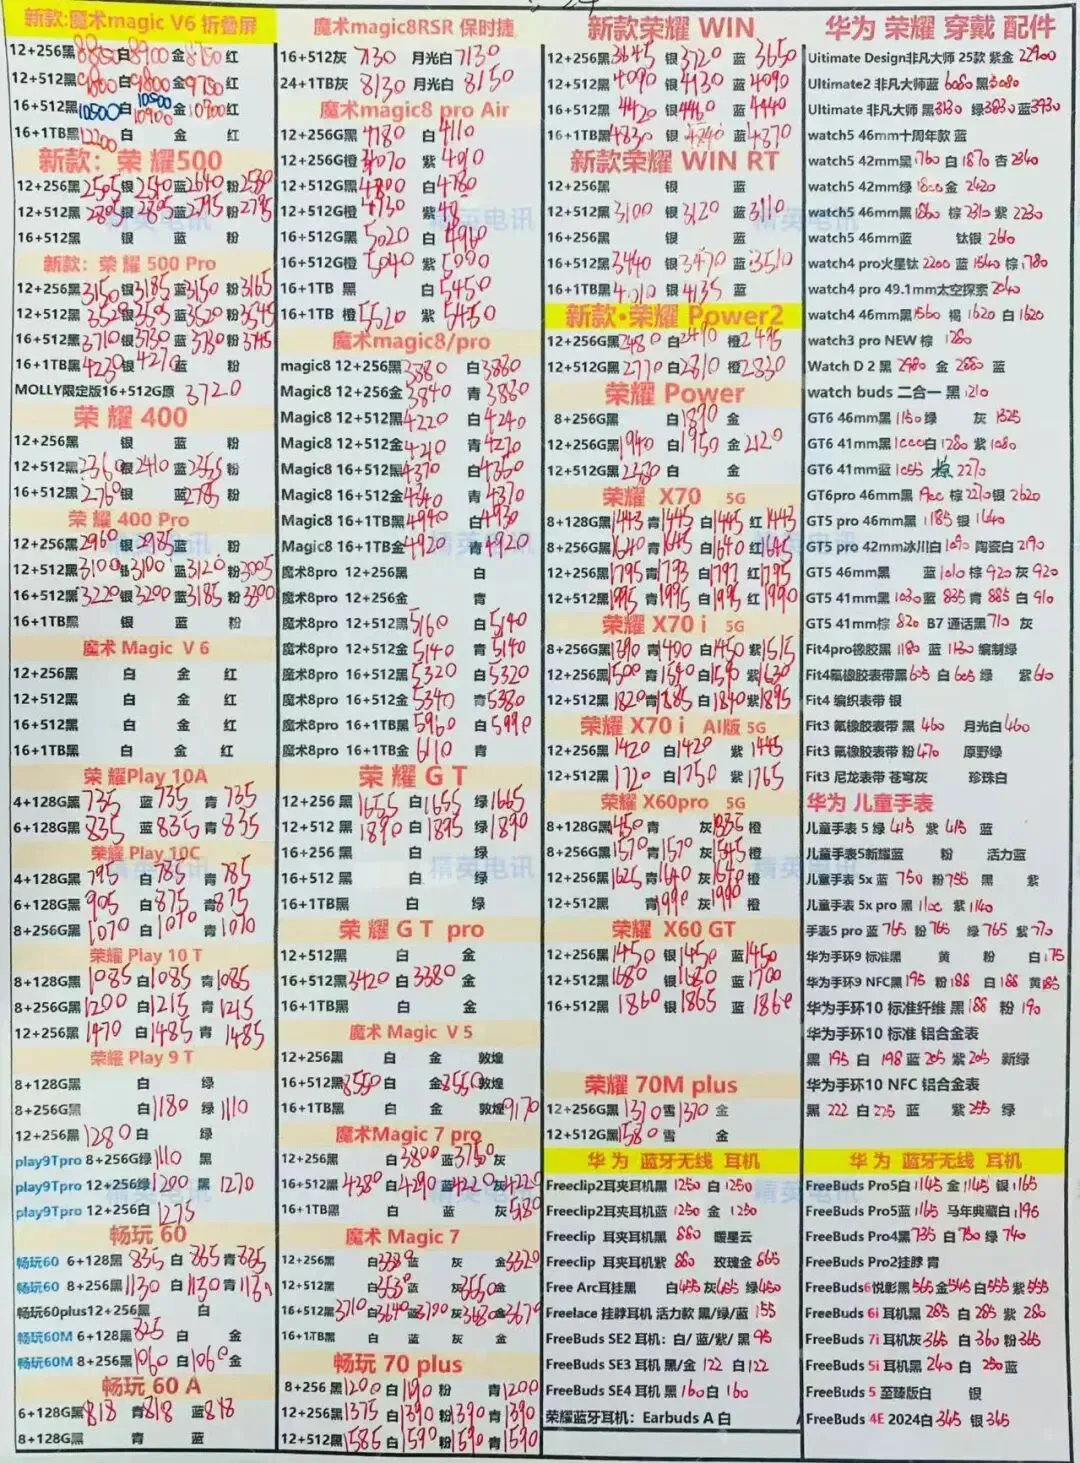 新款:魔术magic V6 折叠屏
12+256黑 白8900 金8750 红
12+512黑 白9800 金9750 红
16+512黑10500白10900 金10700红
16+1TB黑12200 白 金 红
新款：荣 耀500
12+256黑2505银2540蓝2640 粉2580
12+512黑2805银2805蓝2795粉2795
16+512黑 银 蓝 粉
新款：荣 耀 500 Pro
12+256黑3150银3185蓝3150 粉3165
12+512黑3520银3505蓝3520 粉3545
16+512黑3710银3730蓝3730 粉3745
16+1TB黑4230银4270蓝 粉
MOLLY限定版16+512G原 3720
荣 耀 400
12+256黑 银 蓝 粉
12+512黑2360银2410蓝2355粉
16+512黑2760银 蓝2785粉
荣 耀 400 Pro
12+256黑2960银2985蓝 粉
12+512黑3100银3100蓝3120粉3005
16+512黑3220银3200蓝3185粉3300
16+1TB黑 银 蓝 粉
魔术 Magic V 6
12+256黑 白 金 红
12+512黑 白 金 红
16+512黑 白 金 红
16+1TB黑 白 金 红
荣 耀Play 10A
4+128G黑735 蓝735 青735
6+128G黑835 蓝835 青835
荣耀 Play 10C
4+128G黑795 白785 青785
6+128G黑905 白875 青875
8+256G黑1070 白1070 青1070
荣耀 Play 10 T
8+128G黑1085白1085 青1085
8+256G黑1200 白1215 青1215
12+256黑1470 白1485 青1485
荣耀 Play 9 T
8+128G黑 白 绿
8+256G黑 白1180 绿1110
12+256黑1280白 绿
play9Tpro 8+256G绿1110 黑
play9Tpro 12+256绿1200 黑1270
play9Tpro 12+256白1275
畅玩 60
畅玩60 6+128黑835 白865青835
畅玩60 8+256黑1130 白1130青1130
畅玩60plus12+256黑 白
畅玩60M 6+128黑825 白 金
畅玩60M 8+256黑1060 白1060金
畅玩 60 A
6+128G黑818 青818 蓝818
8+128G黑 青 蓝
魔术magic8RSR 保时捷
16+512灰7130 月光白7130
24+1TB灰8130 月光白8150
魔术magic8 pro Air
12+256G黑4780 白4110
12+256G橙4070 紫4090
12+512G黑4800 白4780
12+512G橙4930 紫
16+512G黑5020 白4960
16+512G橙5040 紫5090
16+1TB 黑 白5450
16+1TB 橙5520 紫5450
魔术magic8/pro
magic8 12+256黑3880 白3880
Magic8 12+256金3840 青3880
Magic8 12+512黑4220 白4240
Magic8 12+512金4210 青4270
Magic8 16+512黑4370 白4350
Magic8 16+512金4340 青4370
Magic8 16+1TB黑4940 白4930
Magic8 16+1TB金4920 青4920
魔术8pro 12+256黑 白
魔术8pro 12+256金 青
魔术8pro 12+512黑5160 白5140
魔术8pro 12+512金5140 青5140
魔术8pro 16+512黑5320 白5320
魔术8pro 16+512金5340 青5380
魔术8pro 16+1TB黑5960 白5990
魔术8pro 16+1TB金6110 青
荣 耀 G T
12+256 黑1655 白1655 绿1665
12+512 黑1890白1895 绿1890
16+256 黑 白 绿
16+512 黑 白 绿
16+1TB黑 白 绿
荣 耀 G T pro
12+512黑 白 金
16+512黑3420白3380金
16+1TB黑 白 金
魔术 Magic V 5
12+256黑 白 金 敦煌
16+512黑8550白 金8550敦煌
16+1TB黑 白 金 敦煌9170
魔术Magic 7 pro
12+256黑 白3800蓝3750灰
16+512黑4380白4290蓝4220灰4220
16+1TB黑 白 蓝 灰5180
魔术 Magic 7
12+256黑 白3330蓝 灰 金3320
12+512黑 白3530蓝 灰3550金
16+512黑3710白3640蓝3700灰3680金3670
16+1TB黑 白 蓝 灰 金
畅玩 70 plus
8+256 黑1200白1190粉 青1200
12+256黑1375白1390粉1390青1390
12+512黑1585白1590粉1590青1590
新款荣耀 WIN
12+256黑3645 银3720 蓝3650
12+512黑4090 银4130 蓝4090
16+512黑4420 银4460 蓝4440
16+1TB黑4830 银4840 蓝4370
新款荣耀 WIN RT
12+256黑 银 蓝
12+512黑3100 银3120 蓝3110
16+256黑 银 蓝
16+512黑3440 银3470 蓝3510
16+1TB黑4010 银4135 蓝
新款·荣耀 Power2
12+256G黑2480 白2490 橙2495
12+512G黑2770白2810 橙2830
荣耀 Power
8+256G黑 白1890 金
12+256G黑1940 白1950 金2120
12+512G黑2380 白 金
荣耀 X70 5G
8+128G黑1443青1445 白1445红1443
8+256G黑1640青1645 白1640红1645
12+256黑1795青1793 白1797红1795
12+512黑1995青1995 白1995红1990
荣耀 X70 i 5G
8+256G黑1390青1400 白1450紫1515
12+256黑1500青1540白1590紫1630
12+512黑1820青1885白1840紫1895
荣耀 X70 i AI版 5G
12+256黑1420 白1420 紫1445
12+512黑1720 白1750 紫1765
荣耀 X60pro 5G
8+128G黑1450青 灰1335橙
8+256G黑1570青1570 灰1545橙
12+256黑1625青1640 灰1640橙
12+512黑 青1990灰1990橙
荣耀 X60 GT
12+256黑1450 银1450 蓝1450
12+512黑1680 银1680 蓝1700
16+512黑1860 银1865 蓝1860
荣耀 70M plus
12+256G黑1370雪1370 金
12+512G黑1580雪 金
华 为 蓝牙无线 耳机
Freeclip2耳夹耳机黑 1250 白1250
Freeclip2耳夹耳机蓝1250 金 1250
Freeclip 耳夹耳机黑 880 暖星云
Freeclip 耳夹耳机紫 880 玫瑰金 865
Free Arc耳挂黑 白455灰455 绿450
Freelace 挂脖耳机 活力款 黑/绿/蓝 155
FreeBuds SE2 耳机：白/ 蓝/紫/ 黑 95
FreeBuds SE3 耳机 黑/金 122 白122
FreeBuds SE4 耳机 黑160白 160
荣耀蓝牙耳机：Earbuds A 白
华为 荣耀 穿戴 配件
Uitimate Design非凡大师 25款 紫金22900
Ultimate2 非凡大师蓝 6080黑5080
Ultimate 非凡大师 黑3830 绿3830蓝3930
watch5 46mm十周年款 蓝
watch5 42mm黑1760 白1870 杏2340
watch5 42mm绿1800金 2420
watch5 46mm黑1860 棕2310紫 2230
watch5 46mm蓝 钛银2610
watch4 pro火星钛 2200 蓝1540 棕1780
watch4 pro 49.1mm太空探索2040
watch4 46mm黑1560 褐 1620 白 1620
watch3 pro NEW 棕 1280
Watch D 2 黑 2980 金 2880 蓝
watch buds 二合一 黑 1210
GT6 46mm黑1150绿 灰 1325
GT6 41mm黑1000白1280紫1080
GT6 41mm蓝1055 棕2270
GT6pro 46mm黑 棕2270银2620
GT5 pro 46mm黑 1185 银1640
GT5 pro 42mm冰川白1090 陶瓷白2190
GT5 46mm黑 蓝1010棕920灰920
GT5 41mm黑1030蓝 835青 885 白 910
GT5 41mm棕 820 B7 通话黑710 灰
Fit4pro橡胶黑1190 蓝 1130 编制绿
Fit4氟橡胶表带黑605 白605绿 紫610
Fit4 编织表带 银
Fit3 氟橡胶表带 黑 460 月光白460
Fit3 氟橡胶表带 粉470 原野绿
Fit3 尼龙表带 苍穹灰 珍珠白
华为 儿童手表
儿童手表 5 绿415 紫415 蓝
儿童手表5新耀蓝 粉 活力蓝
儿童手表 5x 蓝 750 粉755 黑 紫
儿童手表 5x pro 黑1100 紫1140
手表5 pro 蓝765 粉765 绿765 紫770
华为手环9 标准黑 黄 粉 白175
华为手环9 NFC黑195 粉188 白188 黄185
华为手环10 标准纤维 黑188 粉 190
华为手环10 标准 铝合金表
黑 195 白 198 蓝205 紫205 新绿
华为手环10 NFC 铝合金表
黑 222 白225 蓝 紫255 绿
华 为 蓝牙无线 耳机
FreeBuds Pro5白1145金1145 银1165
FreeBuds Pro5蓝1165 马年典藏白1195
FreeBuds Pro4黑735 白730 绿 740
FreeBuds Pro2挂脖 青
FreeBuds6悦彰黑565金545白555紫555
FreeBuds 6i 耳机黑 285 白 285 紫 280
FreeBuds 7i 耳机灰365 白360粉365
FreeBuds 5i 耳机黑240 白 250蓝
FreeBuds 5 至臻版白 银
FreeBuds 4E 2024白345 银345